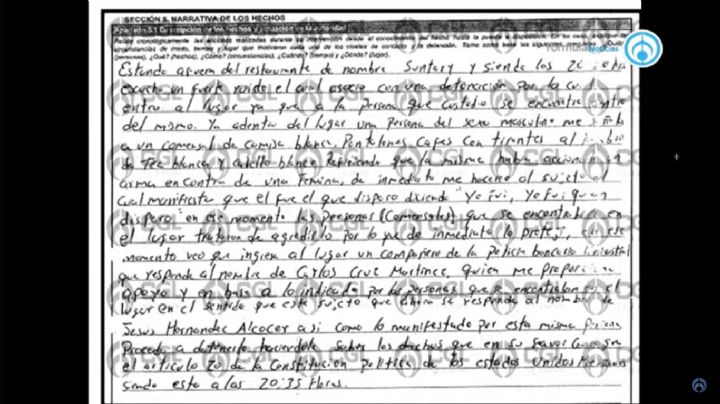 SECCIÓN 5. NARRATIVA DE LOS HECHOS
Apartado 5.1 Descripción de los hechos y actuación de la autoridad
(personas), ¿Qué? (hechos), ¿Cómo? (circunstancias), ¿Cuándo? (tiempo) y ¿Dónde? (lugar).
Fórmula
Noticias
Estando afuera del restaurante de nombre Suntory y siendo las 20
escucho un fuerte ruido el cual asocio con una detonación por lo
entro al lugar ya que a la persona que custodio se encuentra dentro
del mismo. Ya adentro del lugar una persona del sexo masculino me
a un comensal de camisa blanca, Pantalones cafes con tirantes al
de Tez blanca y cabello blanco, Refiriendo que la misma había
arma en contra de una Femina, de inmediato me acerco al sujeto el
cual manifiesta que el fue el que disparo diciendo "Yo Fui, Yo Fui quien
disparo" en ese momento las personas (Comensales) que se encontraban en
el lugar trataron de agredirlo por lo que de inmediato lo protejo, en ese
momento veo que ingresa al lugar un compañero de la policia bancaria industrial
que responde al nombre de Carlos Cruz Martinez, quien me proporciona
apoyo y en base a lo indicado por las personas que se encontraban en el
lugar en el sentido que este sujeto que ahora se responde al nombre de
Jesus Hernandez Alcocer asi como lo manifestado por esta misma persona
Procedo a detenerlo haciendole saber los derechos que en su favor consagra
el articulo 20 de la Constitución politica de los estados Unidos Mexicanos
siendo esto a las 20:35 Horas.
CGL